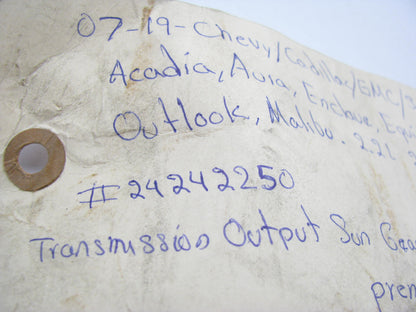 07-19-Chevy/Cadillac/GMC/
Acadia, Aura, Enclave, Equ
Outlook, Malibu. 2.2L
#24242250
Transmission Output Sun Gea
prem